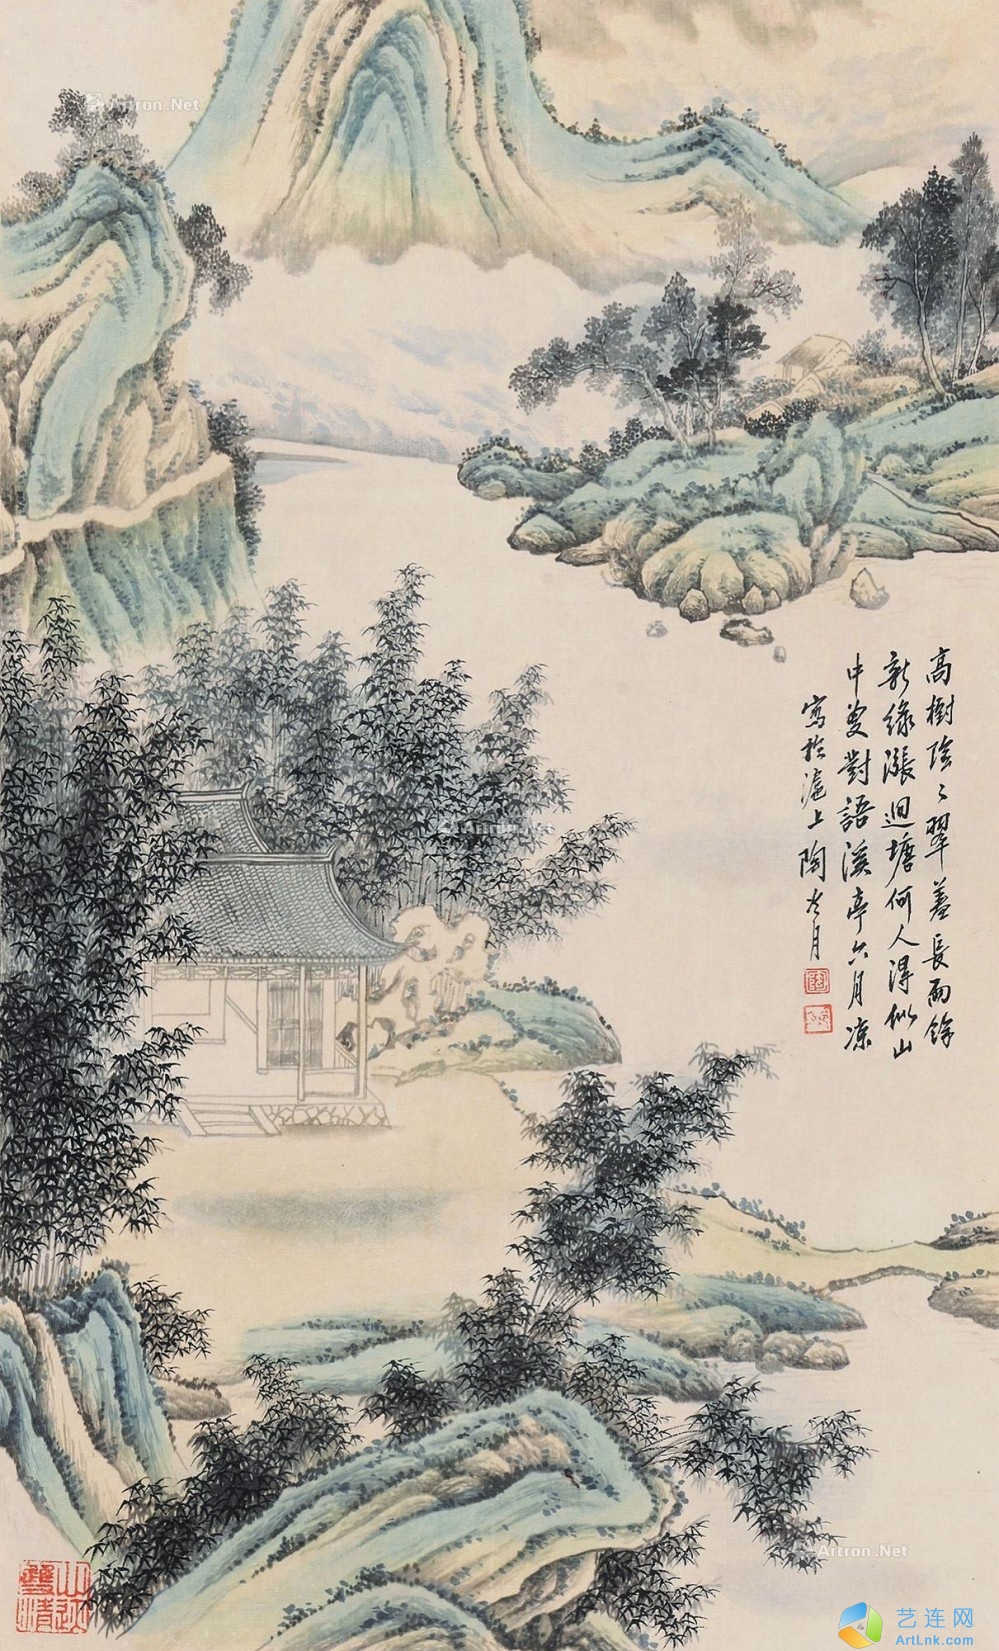 高樹陰〻翠蓋長雨餘
新綠漲迴塘何人得似山
中叟對語溪亭六月涼
寫於滬上陶冷月
陶
Artron.Net
Artron.Net
Artron.Net
艺连网
ArtLnk.com